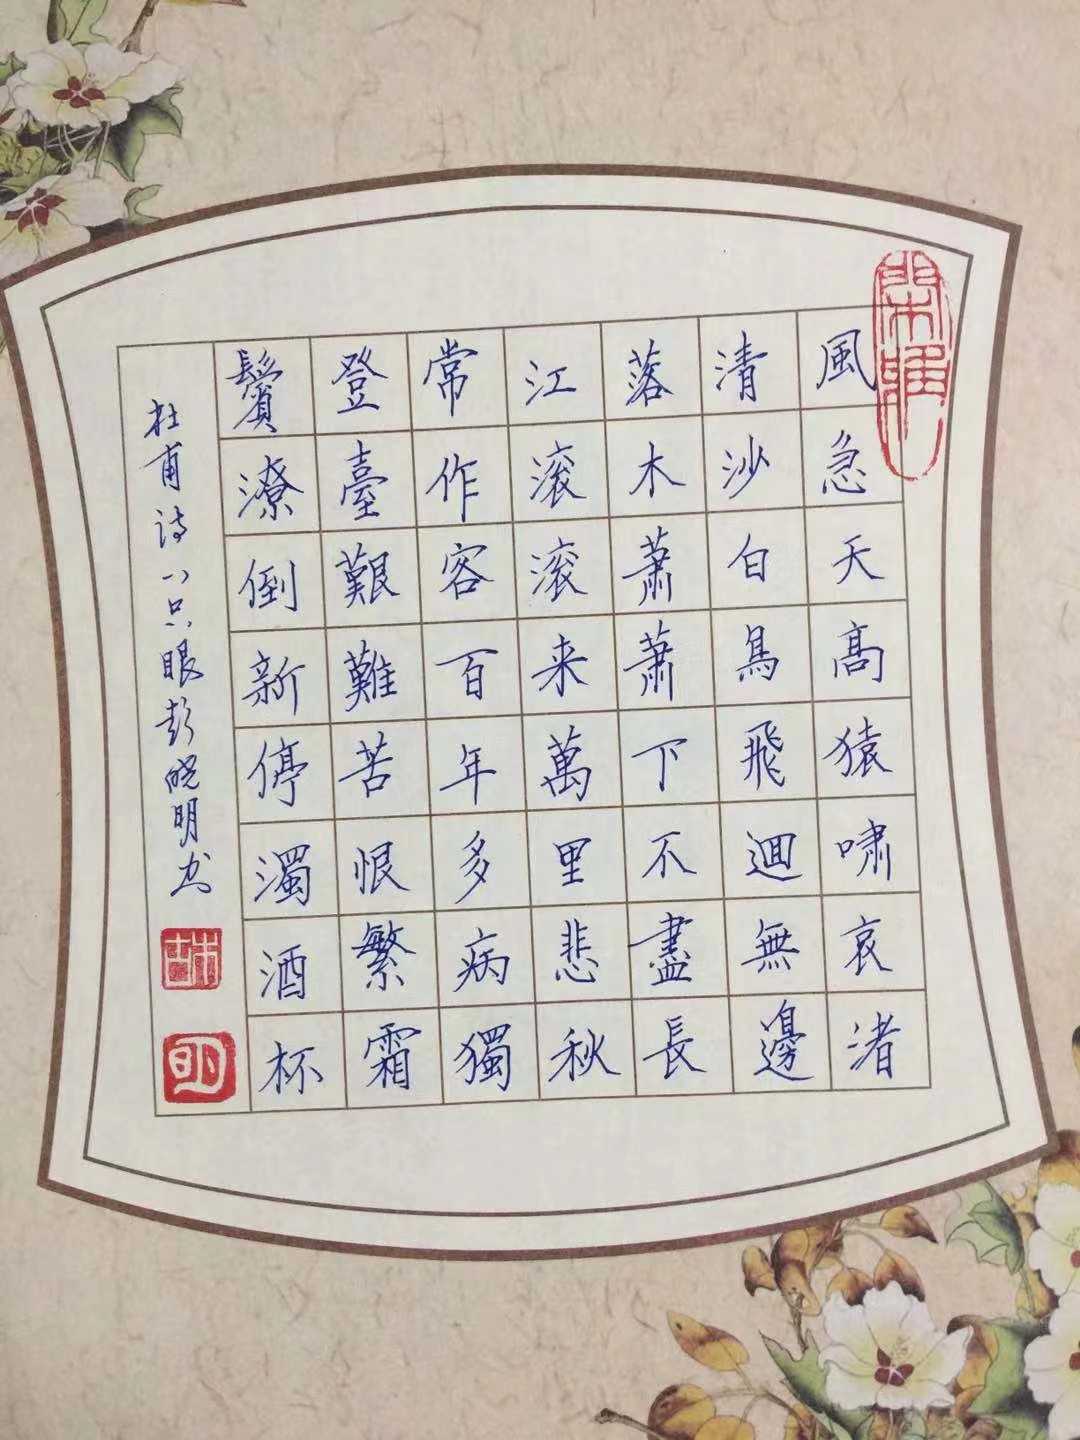 風急天高猿嘯哀渚
清沙白鳥飛迴無邊
落木蕭蕭下不盡長
江滚滚来萬里悲秋
常作客百年多病獨
登臺艱難苦恨繁霜
鬢潦倒新停濁酒杯
杜甫诗八只眼彭晓明书
明